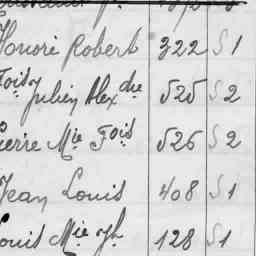 Honoré Robert 322 S 1
Fois Julien Alexdre 525 S 2
Pierre Mie Fois 526 S 2
Jean Louis 408 S 1
Louis Mie Jh 128 S 1